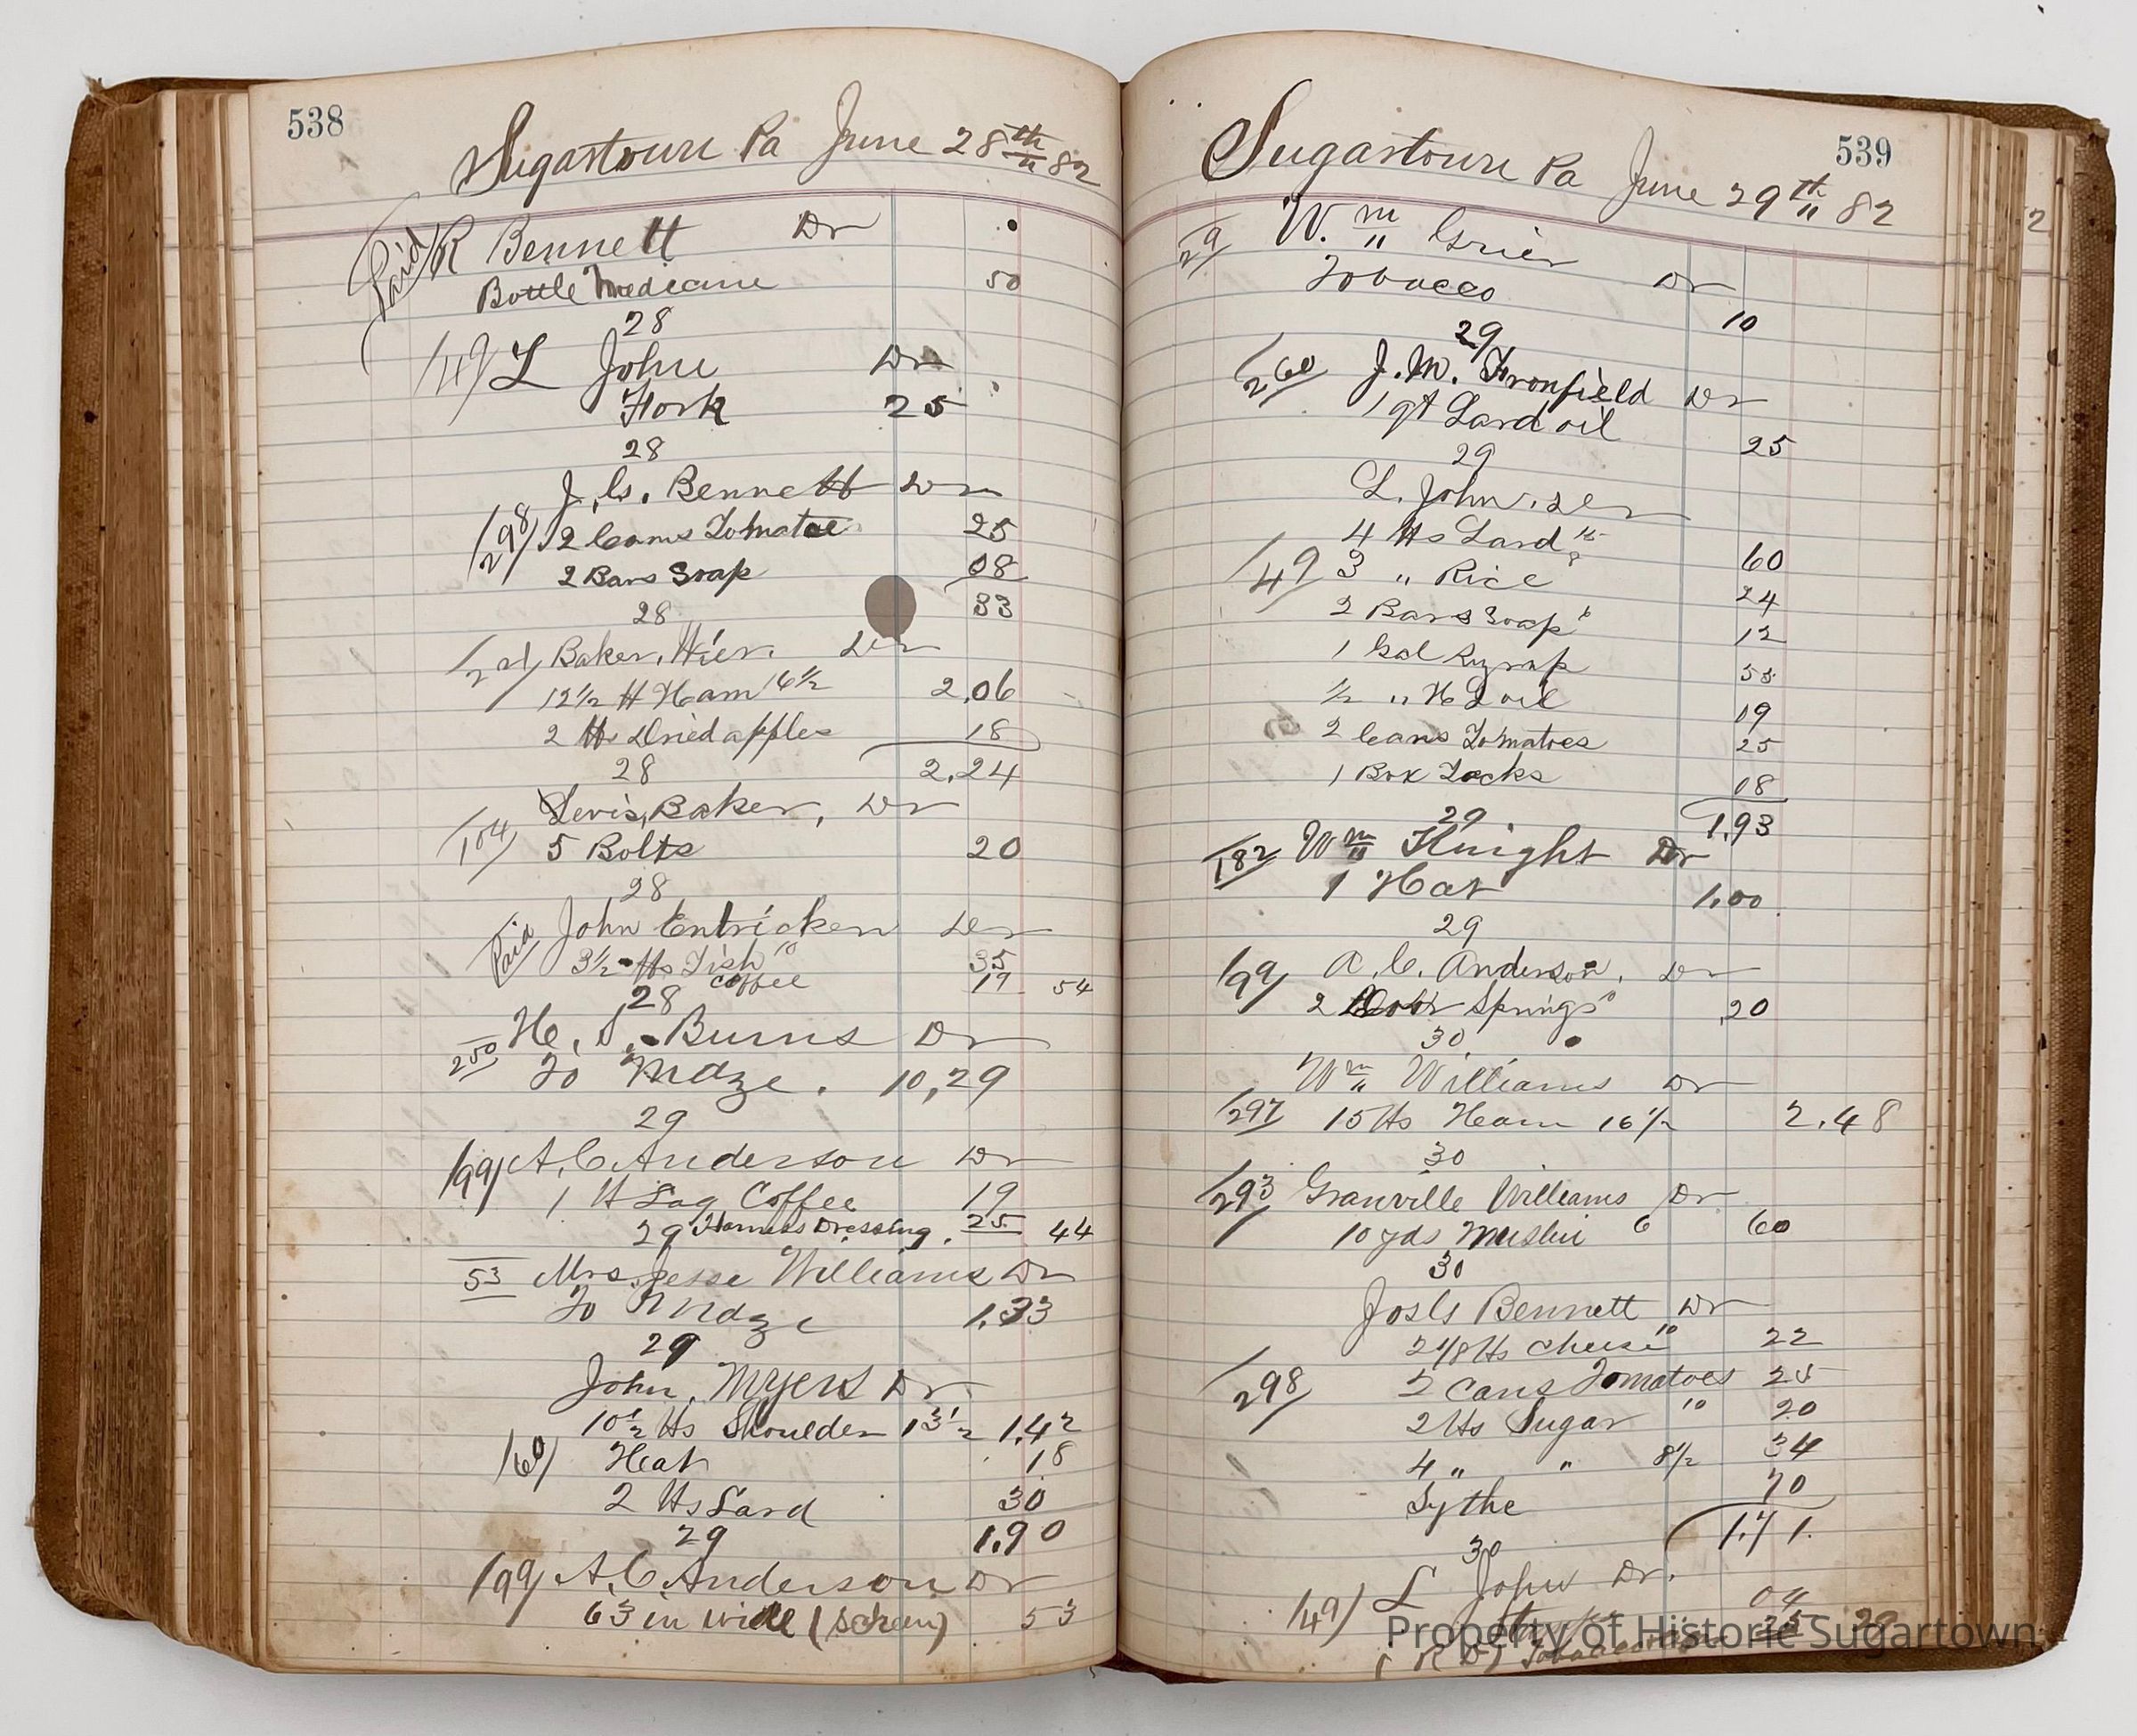 538
Sugartown Pa June 28th 82
Paid R Bennett Dr
Bottle Medicine 50
28
149 L John Dr
Fork 25
28
J. G. Bennett Dr
298 2 Cans Tomatoe 25
2 Bars Soap 08
33
28
Baker, Hier. Dr
12½ ℔ Ham 16½ 2,06
2 ℔s Dried apples 18
28 2,24
Levis, Baker, Dr
104 5 Bolts 20
28
Paid John Entricken Dr
3½ ℔s Fish 10 35
Coffee 19 54
28
250 H. S. Burns Dr
To Mdze. 10,29
29
199 A. C. Anderson Dr
1 ℔ Lag Coffee 19
29 Harness Dressing. 25 44
53 Mrs. Jesse Williams Dr
To Mdze 1.33
29
John. Myers Dr.
10½ ℔s Shoulder 13½ 1.42
160 Heat 18
2 ℔s Lard 30
29 1.90
199 A. C. Anderson Dr
63 in wide (screen) 53
539
Sugartown Pa June 29th 82
29 Wm Grier
Tobacco Dr
10
29
260 J. M. Fronfield Dr
1 qt Lard oil 25
29
L. John. Dr
4 ℔s Lard 15 60
149 3 " Rice 8 24
2 Bars Soap 6 12
1 Gal Syrup 55
½ " H L oil 19
2 Cans Tomatoes 25
1 Box Tacks 08
29 1.93
182 Wm Knight Dr
1 Hat 1.00
29
199 A. C. Anderson. Dr
2 Door Springs 20
30
Wm Williams Dr
297 15 ℔s Ham 16½ 2.48
30
293 Granville Williams Dr
10 yds Muslin 6 60
30
Jos G Bennett Dr
2 1/8 ℔s Cheese 10 22
298 2 Cans Tomatoes 25
2 ℔s Sugar 10 20
4 " " 8½ 34
Sythe 70
1.71.
30
149 L John Dr.
04
25 29
(R D) Tobacco
Property of Historic Sugartown